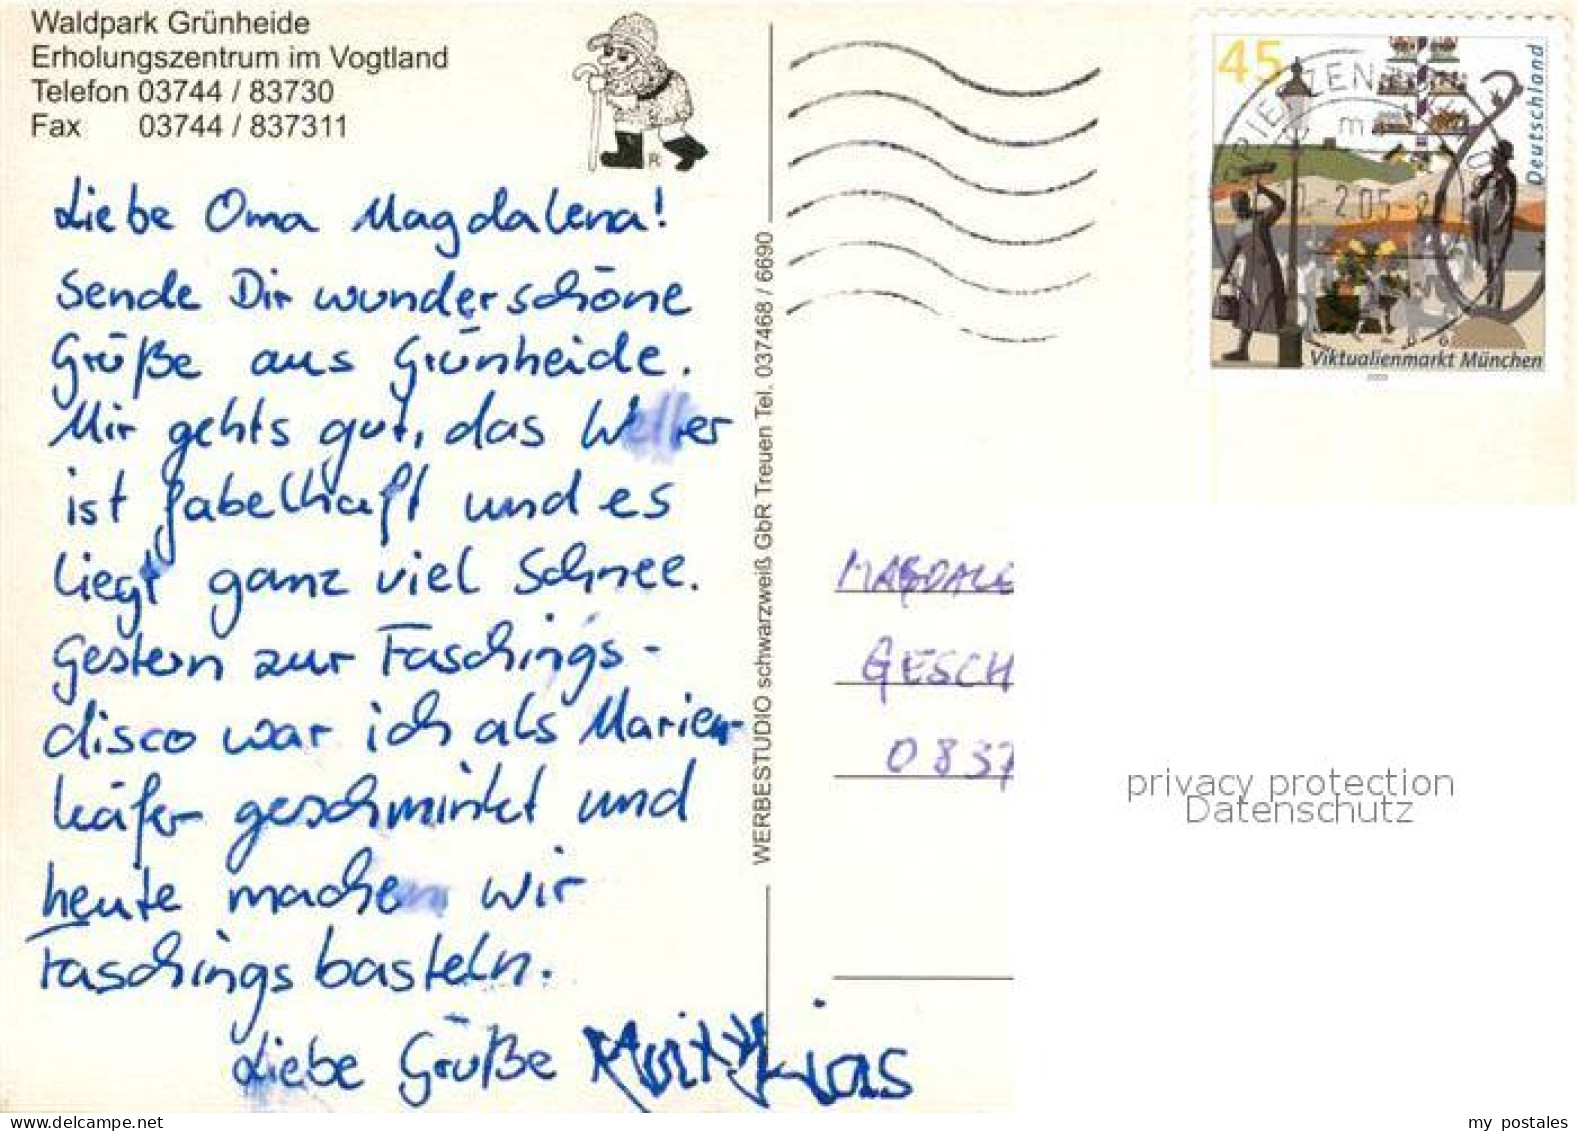 Waldpark Grünheide
Erholungszentrum im Vogtland
Telefon 03744 / 83730
Fax 03744 / 837311
Liebe Oma Magdalena!
Sende Dir wunderschöne
Grüße aus Grünheide.
Mir gehts gut, das Wetter
ist fabelhaft und es
liegt ganz viel Schnee.
Gestern zur Faschings-
disco war ich als Marien-
käfer geschminkt und
heute machen wir
Faschings basteln.
Liebe Grüße
WERBESTUDIO schwarzweiß GbR Treuen Tel. 037468 / 6690
45
Deutschland
BRIEFZENTRUM
Viktualienmarkt München
MAGDALE
GESCH
0837
privacy protection
Datenschutz
my postales